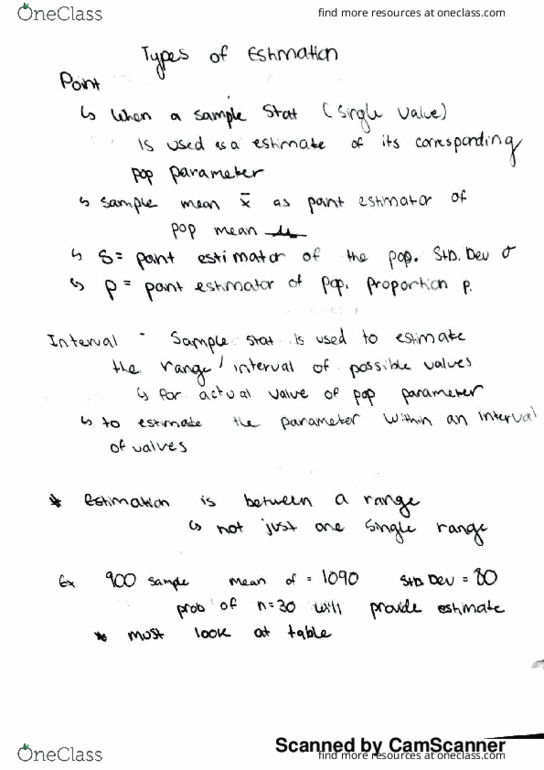 OneClass
find more resources at oneclass.com
Types of Estimation
Point
↳ When a sample Stat (single value)
is used as a estimate of its corresponding
pop parameter
↳ sample mean x̄ as point estimator of
pop mean μ
↳ S = point estimator of the pop. Std. Dev σ
↳ p = point estimator of pop. proportion p.
Interval - Sample stat is used to estimate
the range/interval of possible values
↳ for actual value of pop parameter
↳ to estimate the parameter within an interval
of values
* Estimation is between a range
↳ not just one single range
Ex 900 sample mean of = 1090 Std Dev = 80
prob of n=30 will provide estimate
* must look at table
Scanned by CamScanner
OneClass
find more resources at oneclass.com